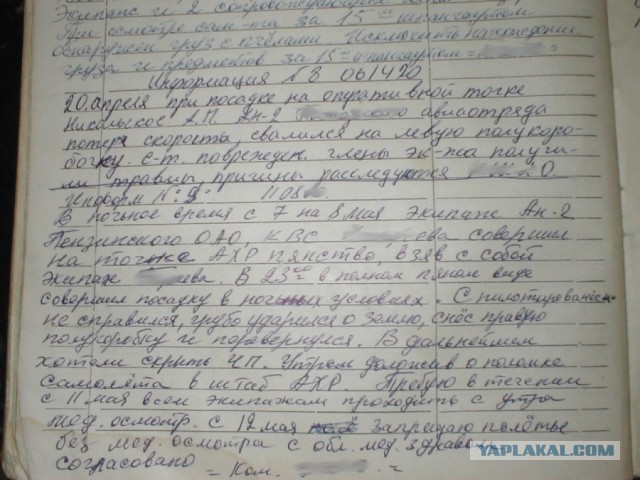 Экипаж и 2 сопровождающих
При осмотре сам-та за 15ым шпангоутом
обнаружен груз с пчёлами Исключить нахождение
груза и предметов за 15ым шпангоутом =
Информация №8 061420
20. апреля при посадке на оперативной точке
Никольское А.П. Ан-2 авиаотряда
потеря скорость, свалился на левую полукоро-
бочку. с-т. поврежден. члены эк-жа получи-
ли травмы, причины расследуются О
Информ №9 1108
В ночное время с 7 на 8 мая экипаж Ан-2
Пензинского ОАО, КВС ева совершил
на точке АХР пянство, взяв с собой
экипаж ева. В 23 в полном пяном виде
совершил посадку в ночных условиях. С пилотированием
не справился, грубо ударился о землю, снёс правую
полукоробку и перевернулся. В дальнейшем
хотели скрыть ЧП. Утром доложив о поломке
самолёта в штаб АХР. Требую в течении
с 11 мая всем экипажам проходить с утра
мед. осмотр. с 12 мая запрещаю полёты
без мед. осмотра с обл. мед. здравом
согласовано = Ком. =
YAPLAKAL.COM